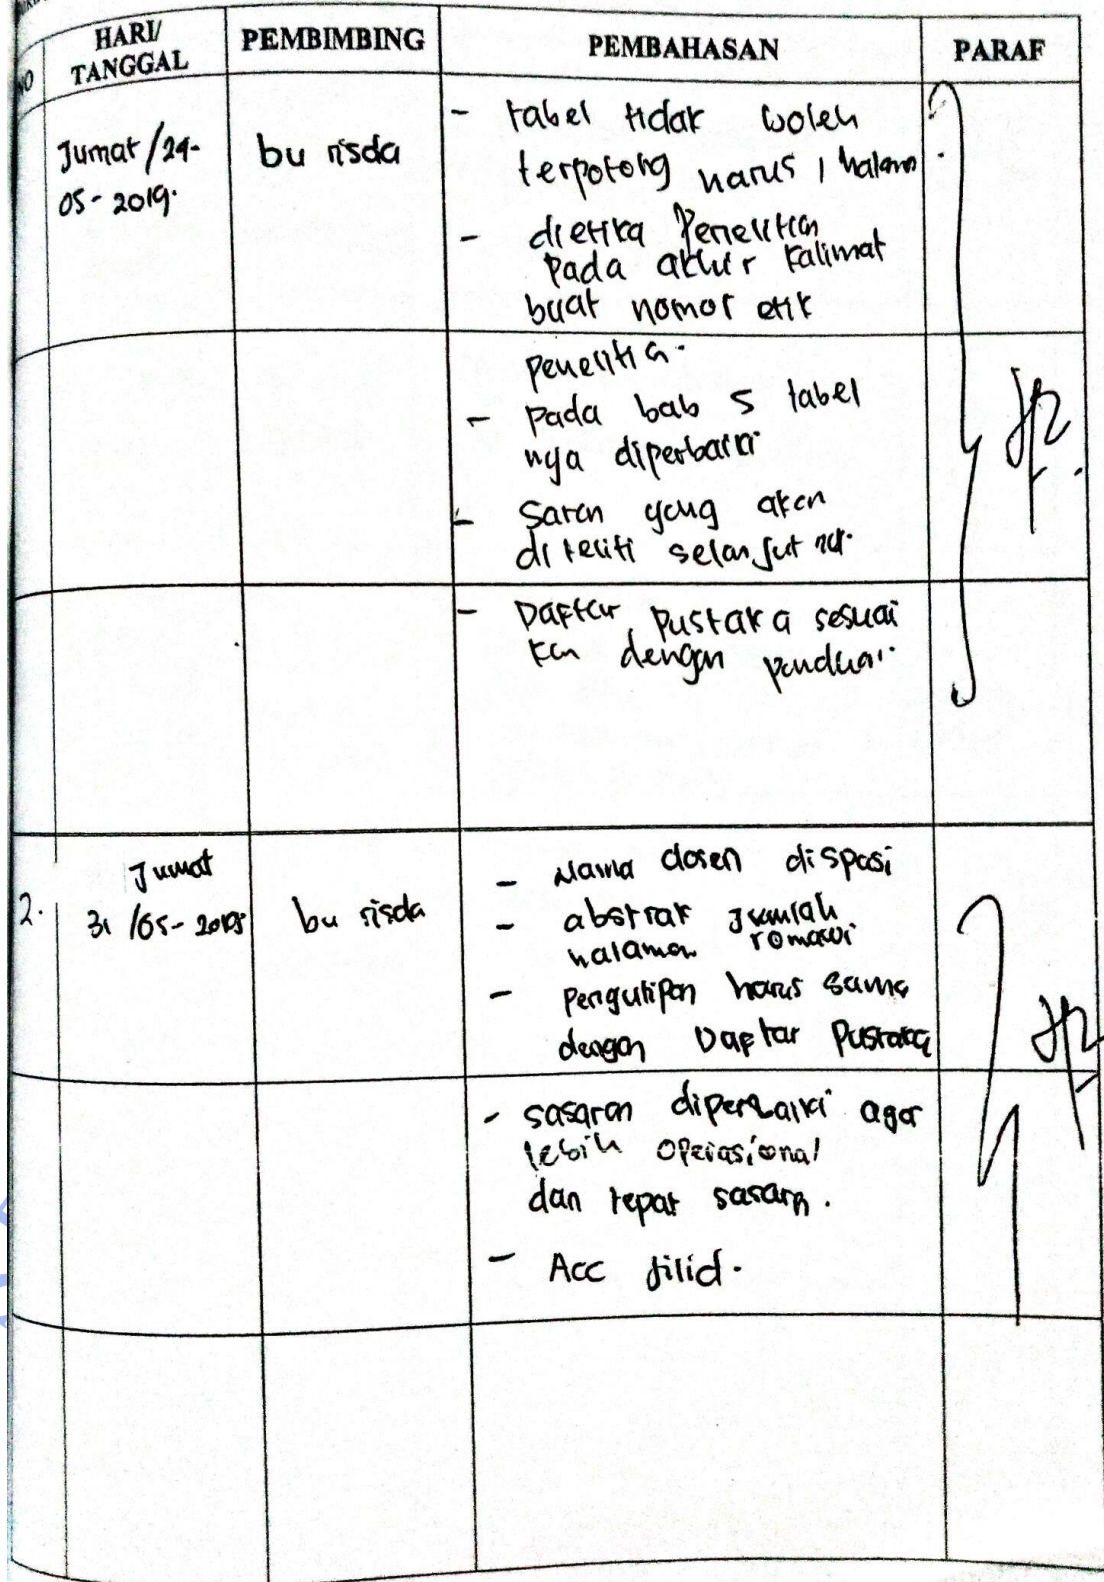 NO
HARI/
TANGGAL
PEMBIMBING
PEMBAHASAN
PARAF
Jumat /24-
05-2019.
bu risda
- tabel tidak boleh
terpotong harus 1 halaman.
- dietika Penelitian
pada akhir kalimat
buat nomor etik
penelitian.
- pada bab 5 tabel
nya diperbaiki
- Saran yang akan
diteliti selanjutnya.
- Daftar Pustaka sesuai
kan dengan panduan.
2.
Jumat
31 /05-2019
bu risda
- Nama dosen dispasi
- abstrak jumlah
halaman romawi
- pengutipan harus sama
dengan Daftar Pustaka
- sasaran diperbaiki agar
lebih operasional
dan tepat sasaran.
- Acc jilid.